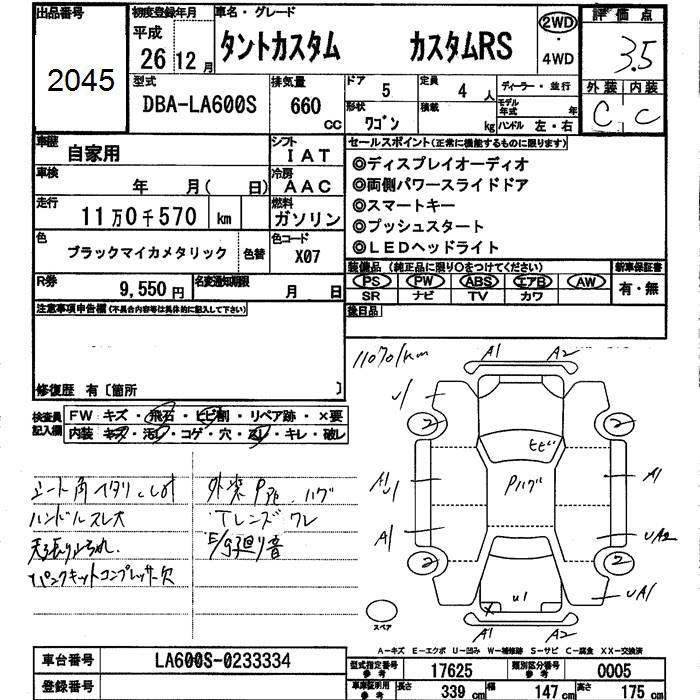 出品番号
2045
初度登録年月
平成
26年12月
車名・グレード
タントカスタム カスタムRS
2WD
・
4WD
評価点
3.5
外装 内装
C C
型式
DBA-LA600S
排気量
660
CC
ドア
5
定員
4人
形状
ワゴン
積載
kg
ディーラー・並行
モデル年式 年
ハンドル 左・右
車歴
自家用
シフト
IAT
車検
年 月( 日)
冷房
AAC
走行
11万0千570 km
燃料
ガソリン
色
ブラックマイカメタリック
色替
色コード
X07
R券
9,550円
名変通知期限
月 日
セールスポイント(正常に機能するものに限ります)
◎ディスプレイオーディオ
◎両側パワースライドドア
◎スマートキー
◎プッシュスタート
◎LEDヘッドライト
装備品(純正品に限り○をつけてください)
PS PW ABS エアB AW
SR ナビ TV カワ
新車保証書
有・無
後日品
注意事項申告欄(不具合内容等は具体的に記入して下さい)
修復歴 有〔箇所 〕
検査員
記入欄
FW キズ・飛石・ヒビ割・リペア跡・×要
内装 キズ・汚レ・コゲ・穴・スレ・キレ・破レ
ハンドルスレ大
パンクキットコンプレッサー欠
Tレンズワレ
110701km
A1 A2
U1
2 2
ヒビ
Pハゲ
A1
U1
A1
A1
UA2
2 2
UA1
U1
X
A1 A2
スペア
A-キズ E-エクボ U-凹み W-補修跡 S-サビ C-腐食 XX-交換済
車台番号
LA600S-0233334
登録番号
型式指定番号
参考
17625
類別区分番号
参考
0005
車車証明用
参考
長さ 339 cm
幅 147 cm
高さ 175 cm